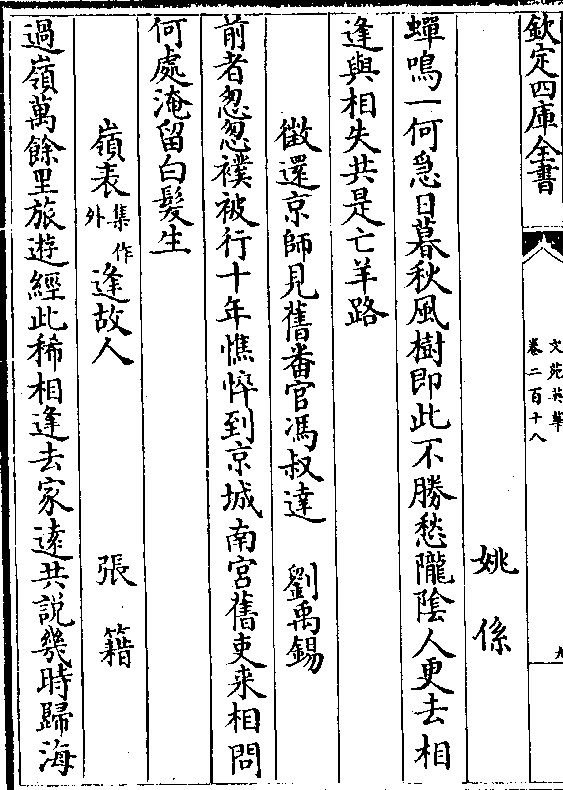 欽定四庫全書
文苑英華
卷二百十八
九
姚係
蟬鳴一何急日暮秋風樹即此不勝愁隴陰人更去相
逢與相失共是亡羊路
徵還京師見舊畨官馮叔達 劉禹錫
前者怱怱襆被行十年憔悴到京城南宫舊吏来相問
何處淹留白髮生
嶺表集作外逢故人 張籍
過嶺萬餘里旅遊經此稀相逢去家逺共説幾時歸海